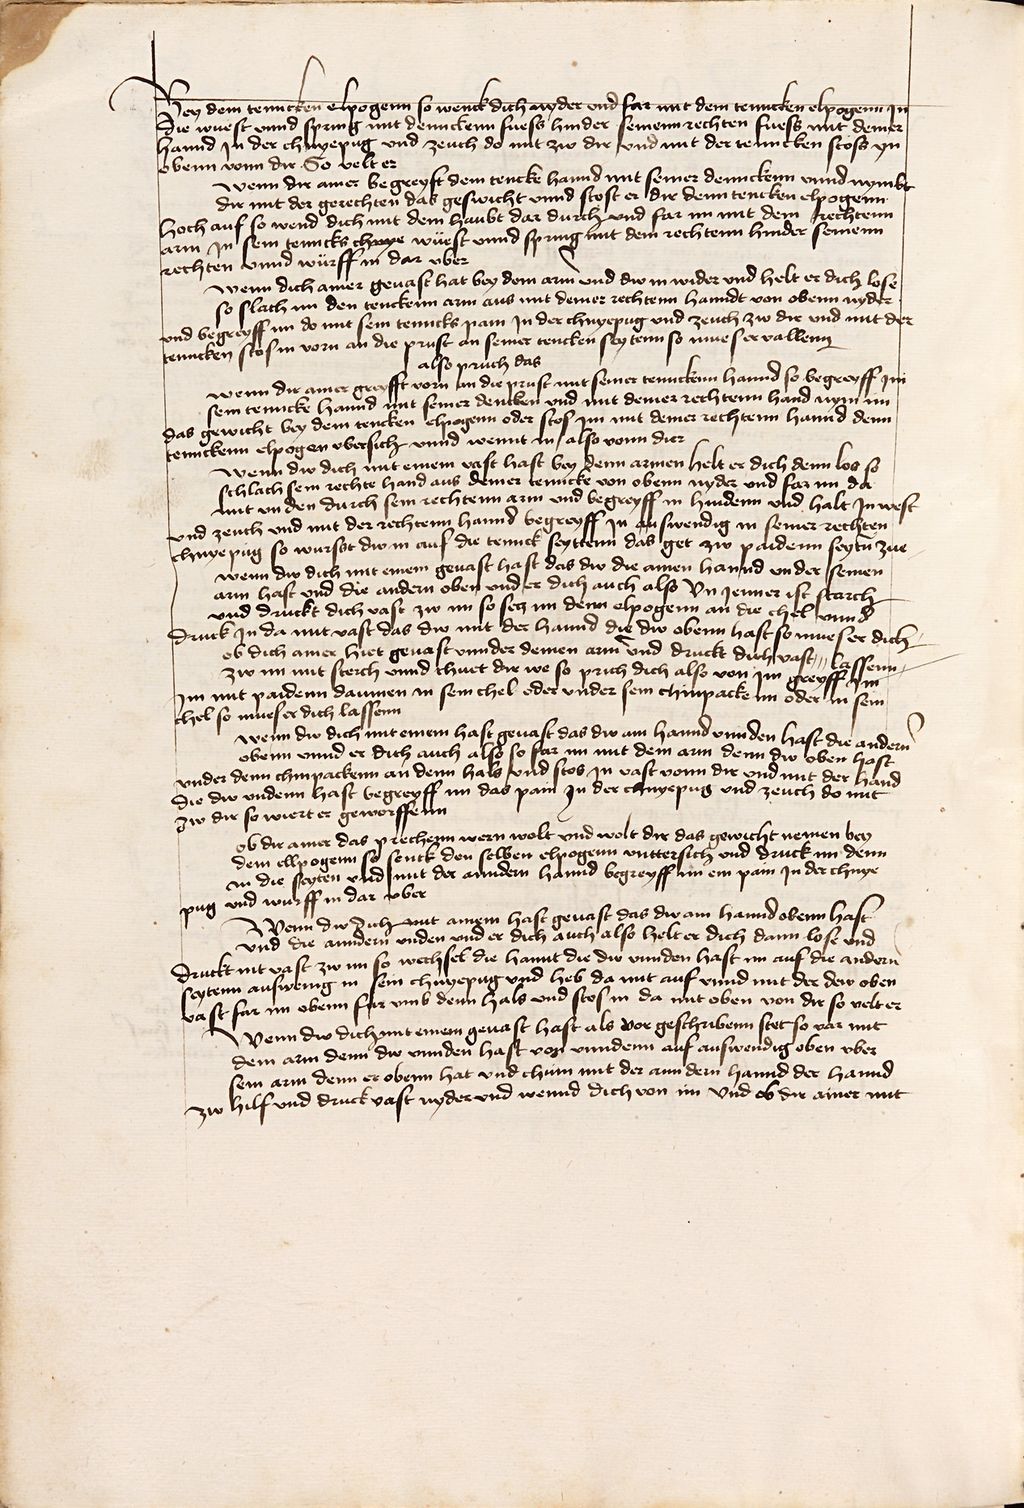 Bey dem tenncken elpogenn so wenck dich nyder und far mit dem tenncken elpogenn In
die wuest unnd spring mit dennckenn fuess hinder seinenn rechten fuess mit deiner
hannd In der chnyepug und zeuch do mit zw dir und mit der tenncken stoss yn
obenn vonn dir So velt er
Wenn dir ainer begreyft dein tencke hannd mit seiner dennckenn unnd nymbt
dir mit der gerechten das geswicht unnd stost er dir denn tencken elpogenn
hoch auf so wend dich mit dem haubt dar durch und far im mit dem rechtenn
arm In sein tenncks chnye wüest unnd spring mit dem rechtenn hinder seinenn
rechten unnd würff in dar uber
Wenn dich ainer gevast hat bey dem arm und dw in wider und helt er dich lose
so slach im den tenckenn arm aus mit deiner rechtenn hanndt von obenn nyder
und begreyff im do mit sein tenncks pain In der chnyepug und zeuch zw dir und mit der
tenncken stos in vorn an die prust an seiner tencken seytenn so mues er vallenn
also pruch das
Wenn dir ainer greyfft vorn an die prust mit seiner tennckenn hannd so begreyff im
sein tenncke hannd mit seiner dencken und mit deiner rechtenn hand nym im
das gewicht bey dem tencken elpogenn oder stos im mit deiner rechtenn hannd denn
tennckenn elpogen ubersich unnd wennt in also vonn dier
Wenn dw dich mit einem vast hast bey denn armen helt er dich denn los so
schlach sein rechte hand aus deiner tenncke von obenn nyder und far im da
mit unden durch sein rechtenn arm und begreyff in hindenn und halt In vest
und zeuch und mit der rechtenn hannd begreyff In auswendig in seiner rechten
chnyepug so wurfst dw in auf die tennck seyttenn das get zw paidenn seytn zue
wenn dw dich mit einem gevast hast das dw die ainen hannd under seinen
arm hast und die andern oben und er dich auch also Un Jenner ist starch
und druckt dich vast zw im so secz im denn elpogenn an die chel unnd
druck In da mit vast das dw mit der hannd die dw obenn hast so mues er dich
lassenn
ob dich ainer hiet gevast unnder deinen arm und druckt dich vast
zw im mit sterch unnd thuet dir we so prich dich also von im greyff Im
Im mit paidenn daumen in sein chel oder under sein chinpacke im oder in sein
chel so mues er dich lassenn
wenn dw dich mit einem hast gevast das dw ain hannd unnden hast die andern
obenn unnd er dich auch also so far im mit dem arm denn dw oben hast
under denn chinpackenn an denn hals und stos In vast vonn dir und mit der hand
die dw undenn hast begreyff im das pain In der chnyepug und zeuch do mit
zw dir so wiert er geworffenn
ob dir ainer das prechenn wern wolt und wolt dir das gewicht nemen bey
dem ellpogenn so senck den selben elpogenn unttersich und druck im denn
in die seyten und mit der anndern hannd begreyff im ein pain In der chnye
pug und wurff in dar uber
Wenn dw dich mit ainem hast gevast das dw ain hannd obenn hast
und die anndern unden und er dich auch also helt er dich dann lose und
druckt nit vast zw im so wechsel die hannt die dw unnden hast im auf die andern
seytenn auswenig in sein chnyepug und heb da mit auf unnd mit der dew oben
vast far im obenn fur umb denn hals und stos in da mit oben von dir so velt er
Wenn dw dich mit einem gevast hast als vor geschribenn stet so var mit
dem arm denn dw unnden hast von unndenn auf auswendig oben uber
sein arm denn er obenn hat und chum mit der anndern hannd der hannd
zw hilf und druck vast nyder und wennd dich von im Und ob dir ainer mit